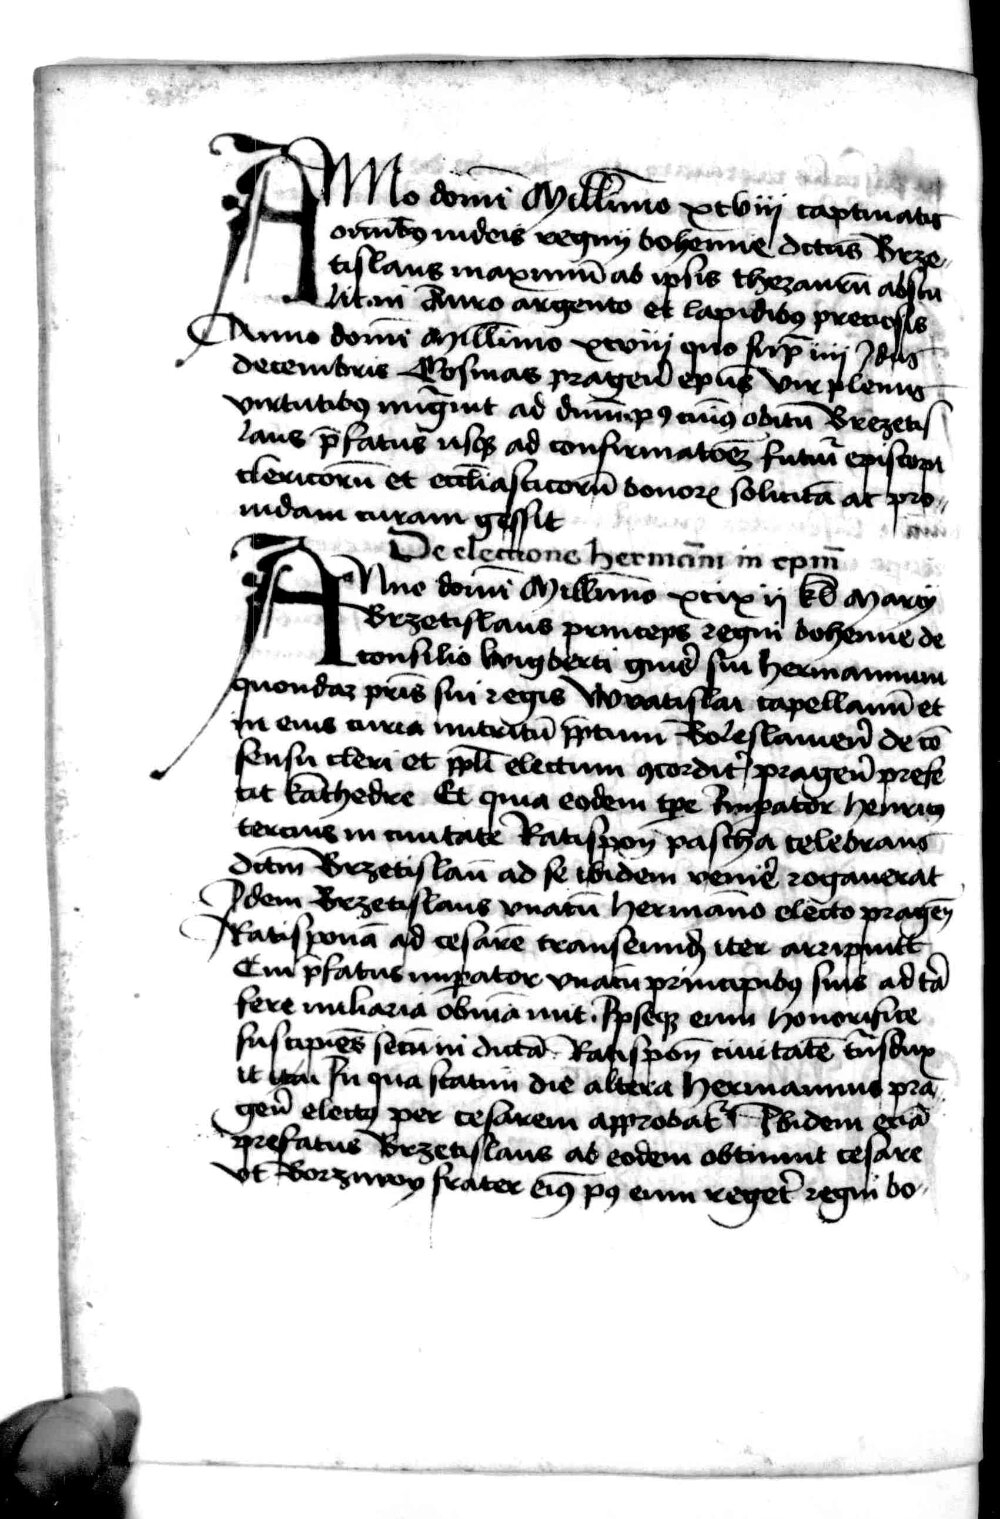 ANno domī Millīmo xcviij captiuatis
omībꝯ iudeis regnij bohemie dictus Brze-
tislaus maximū ab ipsis thezaurū abstu
lit in Auro argento et lapidibꝯ preciosis
Anno domī Millīmo xcviij quo sup̄ iiij Jdus
decembris Cosmas pragen̄ ep̄us vir plenus
virtutibꝯ mig̃uit ad dn̄m pꝯ cuiꝯ obitū Brezetis
laus p̄fatus usqꝫ ad confirmatōeꝫ futuri episcopi
clericorū et eccl̄iasticorū bonorꝝ solicitā ac pro-
uidam curam gessit
De electione hermān̄i in ep̄m
ANno domī Millīmo xcix ij kl̄ Marcij
Brzetislaus princeps regni bohemie de
consilio wigberti gen̄ri sui hermannum
quondaꝫ pr̄is sui regis Wratislai capellanū et
in eius curia nutritū p̄p̄tum Boleslauien̄ de cō
sensu cleri et pp̄li electum ꝯcordit̾ pragen̄ prefe
cit kathedre Et quia eodem tp̄e Imꝑator henricꝯ
tercius in ciuitate Ratispon̄ pascha celebrans
dictm̄ Brzetislaū ad se ibidem venir̄e rogauerat
Jdem Brzetislaus vnacū hermāno electo pragen̄
Ratisponā ad cesarē transeund̄ iter arripuitt
Cui p̄fatus imꝑator vnacū principibꝯ suis ad tria
fere miliaria obuiā iuit Ipseqꝫ eum honorifice
suscipiēs secū in dictā Ratispon̄ ciuitatē tn̄sdux
it In qua statim die altera hermannus pra-
gen̄ electꝯ per cesarem approbat̾ Ibidem eciā
prefatus Brzetislaus ab eodem obtinuit cesare
vt Borziwoy frater eiꝯ pꝯ eum reger̄et regni bo-